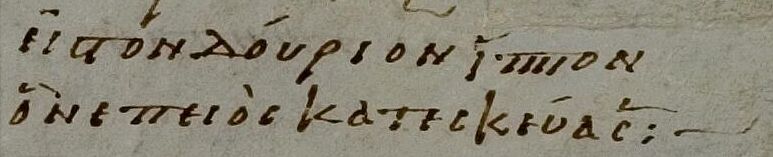 εἰς τὸν δούριον ἵππον
ὃν ἐπειὸς κατεσκεύασε: